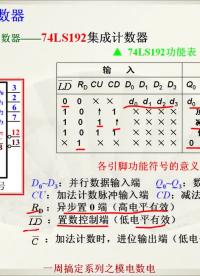 数器
数器——74LS192集成计数器
▲ 74LS192功能表
输 入
LD R_D CU CD D₀ D₁ D₂ D₃ Q₀
0 0 × × d₀ d₁ d₂ d₃ d₀
1 0 ↑ 1 × × × ×
1 0 1 ↑ × × × × 减
1 0 1 1 × × × ×
3
2
6
7
12
13
号
各引脚功能符号的意义
D₀~D₃：并行数据输入端 Q₀~Q₃：数
CU：加法计数脉冲输入端 CD：减法
R_D：异步置 0 端（高电平有效）
LD：置数控制端（低电平有效）
C：加法计数时，进位输出端（低电
一周搞定系列之模电数电